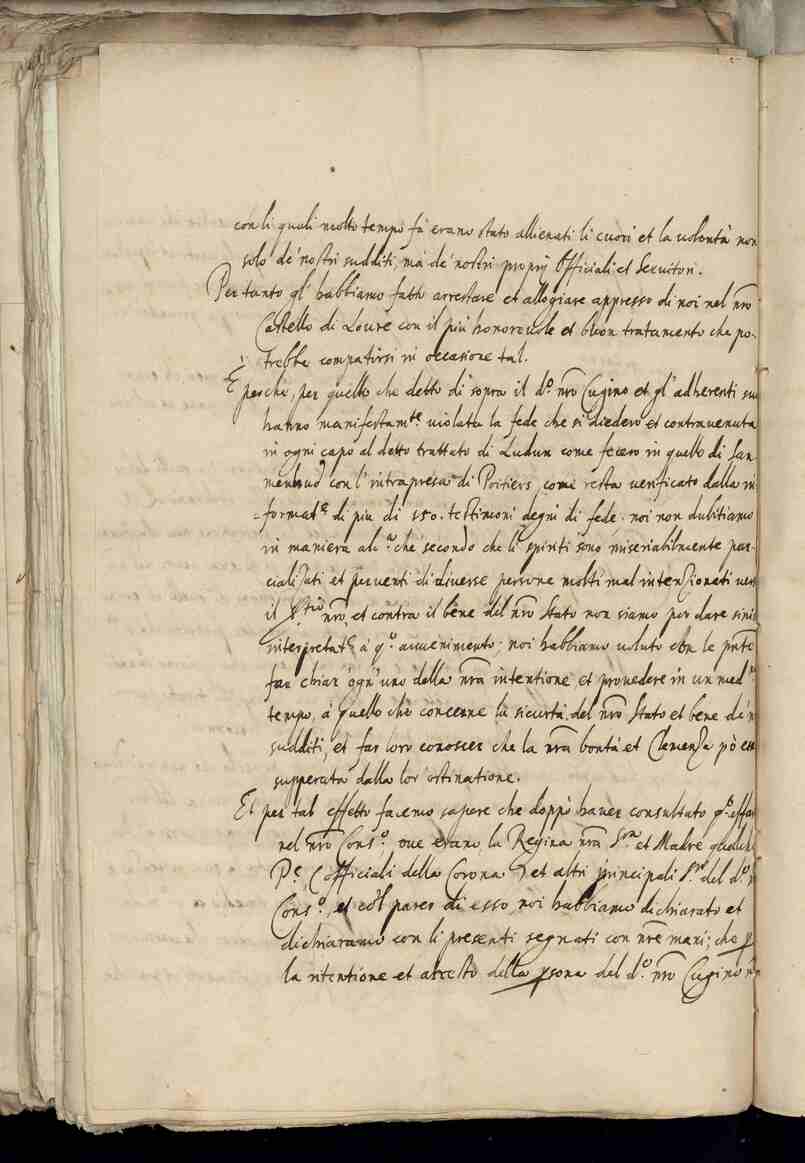 con li quali molto tempo fà erano stato allienati li cuori et la volontà non
solo de' nostri sudditi, mà de' nostri proprij Officiali et Servitori.
Per tanto gl' habbiamo fatto arrestare et allogiare appresso di noi nel nro
Castello di Loure con il più honorevole et buon trattamento che po-
trebbe compatirsi in occasione tal.
È perche, per quello che detto di sopra il d.º nro Cugino et gl' adherenti
hanno manifestam.te violata la fede che si diedero et contravenuta
in ogni capo al detto trattato di Ludun come fecero in quello di San-
con l' intrapresa di Poitiers, come resta verificato dalla in
=format.e di piu di 550. testimoni degni di fede. noi non dubitiamo
in maniera alc.a che secondo che li spiriti sono miseriabilmente par-
cialisati et di diverse persone molti mal intenzionati
il nro, et contra il bene del nro Stato non siamo per dare
interpretat.e à q.º avvenimento; noi habbiamo voluto con le pnte
far chiar ogn' uno della nra intentione, et provedere in un med.º
tempo, à quello che concerne la sicurtà del nro Stato et bene de' n
sudditi, et far loro conoscer che la nra bontà et Clemenza pò
supperata dalla lor ostinatione.
Et per tal effetto facemo sapere che doppò haver consultato q.º
nel nro Cons.º ove erano la Regina nra S.ra et Madre
P.e, (officiali della Corona) et altri principali S.ri del d.º
Cons.º, et col parer di esso, noi habbiamo dichiarato et
dichiaramo con li presenti segnati con nre mani; che p
la ritentione et arresto della psona del d.º nro Cugino